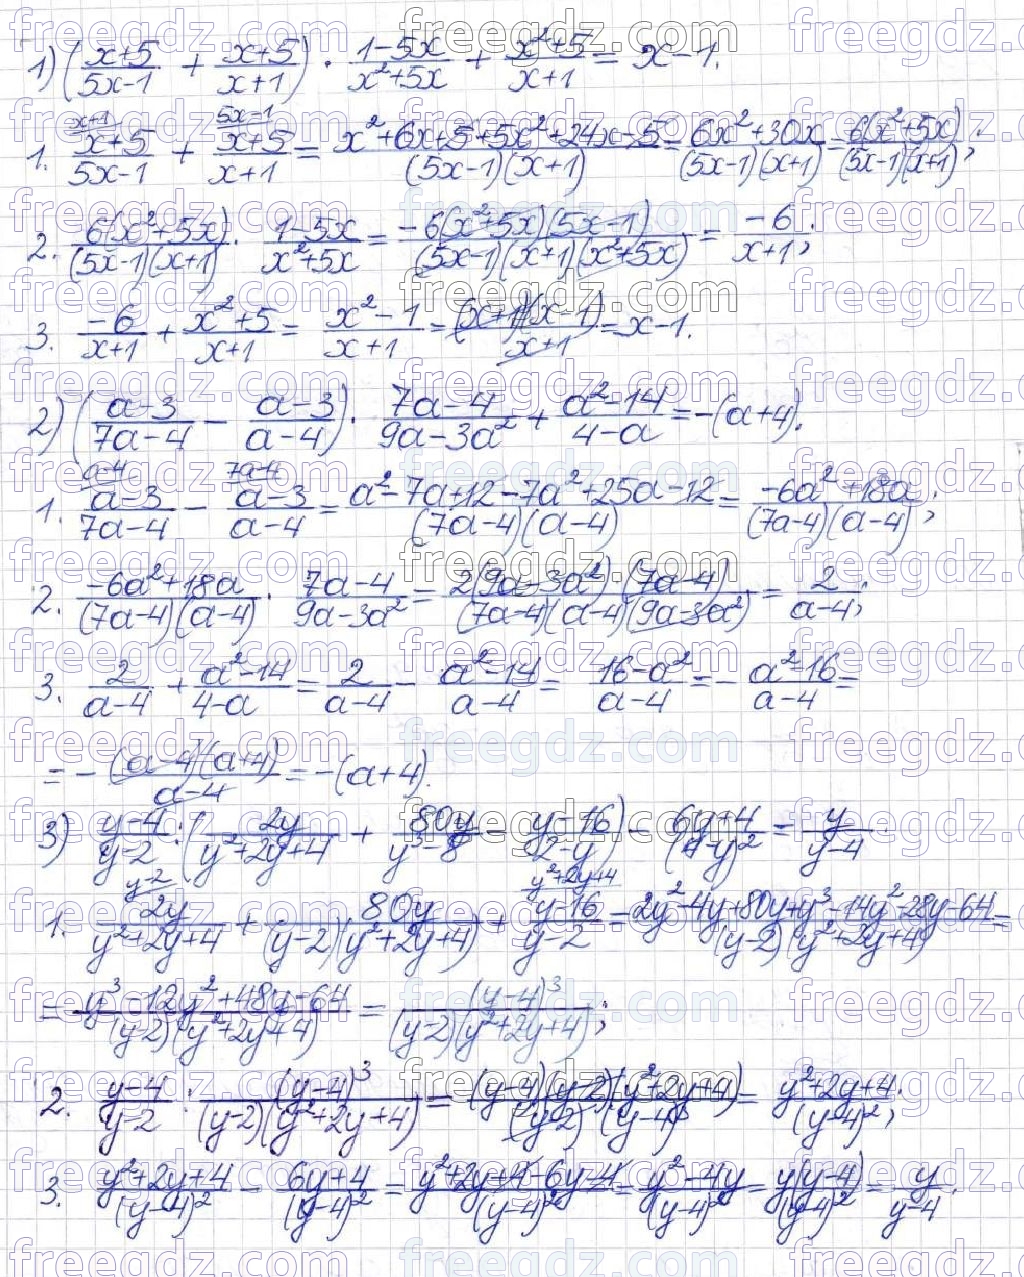 1) ((x+5)/(5x-1) + (x+5)/(x+1)) · (1-5x)/(x²+5x) + (x²+5)/(x+1) = x-1.
1. (x+5)/(5x-1) [x+1] + (x+5)/(x+1) [5x-1] = (x²+6x+5+5x²+24x-5)/((5x-1)(x+1)) = (6x²+30x)/((5x-1)(x+1)) = 6(x²+5x)/((5x-1)(x+1));
2. 6(x²+5x)/((5x-1)(x+1)) · (1-5x)/(x²+5x) = -6(x²+5x)(5x-1)/((5x-1)(x+1)(x²+5x)) = -6/(x+1);
3. -6/(x+1) + (x²+5)/(x+1) = (x²-1)/(x+1) = (x+1)(x-1)/(x+1) = x-1.
2) ((a-3)/(7a-4) - (a-3)/(a-4)) · (7a-4)/(9a-3a²) + (a²-14)/(4-a) = -(a+4).
1. (a-3)/(7a-4) [a-4] - (a-3)/(a-4) [7a-4] = (a²-7a+12-7a²+25a-12)/((7a-4)(a-4)) = (-6a²+18a)/((7a-4)(a-4));
2. (-6a²+18a)/((7a-4)(a-4)) · (7a-4)/(9a-3a²) = 2(9a-3a²)·(7a-4)/((7a-4)(a-4)(9a-3a²)) = 2/(a-4);
3. 2/(a-4) + (a²-14)/(4-a) = 2/(a-4) - (a²-14)/(a-4) = (16-a²)/(a-4) = - (a²-16)/(a-4) =
= - (a-4)(a+4)/(a-4) = -(a+4).
3) (y-4)/(y-2) : (2y/(y²+2y+4) + 80y/(y³-8) - (y-16)/(2-y)) - (6y+4)/(4-y)² = y/(y-4)
1. 2y/(y²+2y+4) [y-2] + 80y/((y-2)(y²+2y+4)) + (y-16)/(y-2) [y²+2y+4] = (2y²-4y+80y+y³-14y²-28y-64)/((y-2)(y²+2y+4)) =
= (y³-12y²+48y-64)/((y-2)(y²+2y+4)) = (y-4)³/((y-2)(y²+2y+4));
2. (y-4)/(y-2) : (y-4)³/((y-2)(y²+2y+4)) = (y-4)(y-2)(y²+2y+4)/((y-2)(y-4)³) = (y²+2y+4)/(y-4)²;
3. (y²+2y+4)/(y-4)² - (6y+4)/(y-4)² = (y²+2y+4-6y-4)/(y-4)² = (y²-4y)/(y-4)² = y(y-4)/(y-4)² = y/(y-4).
freegdz.com